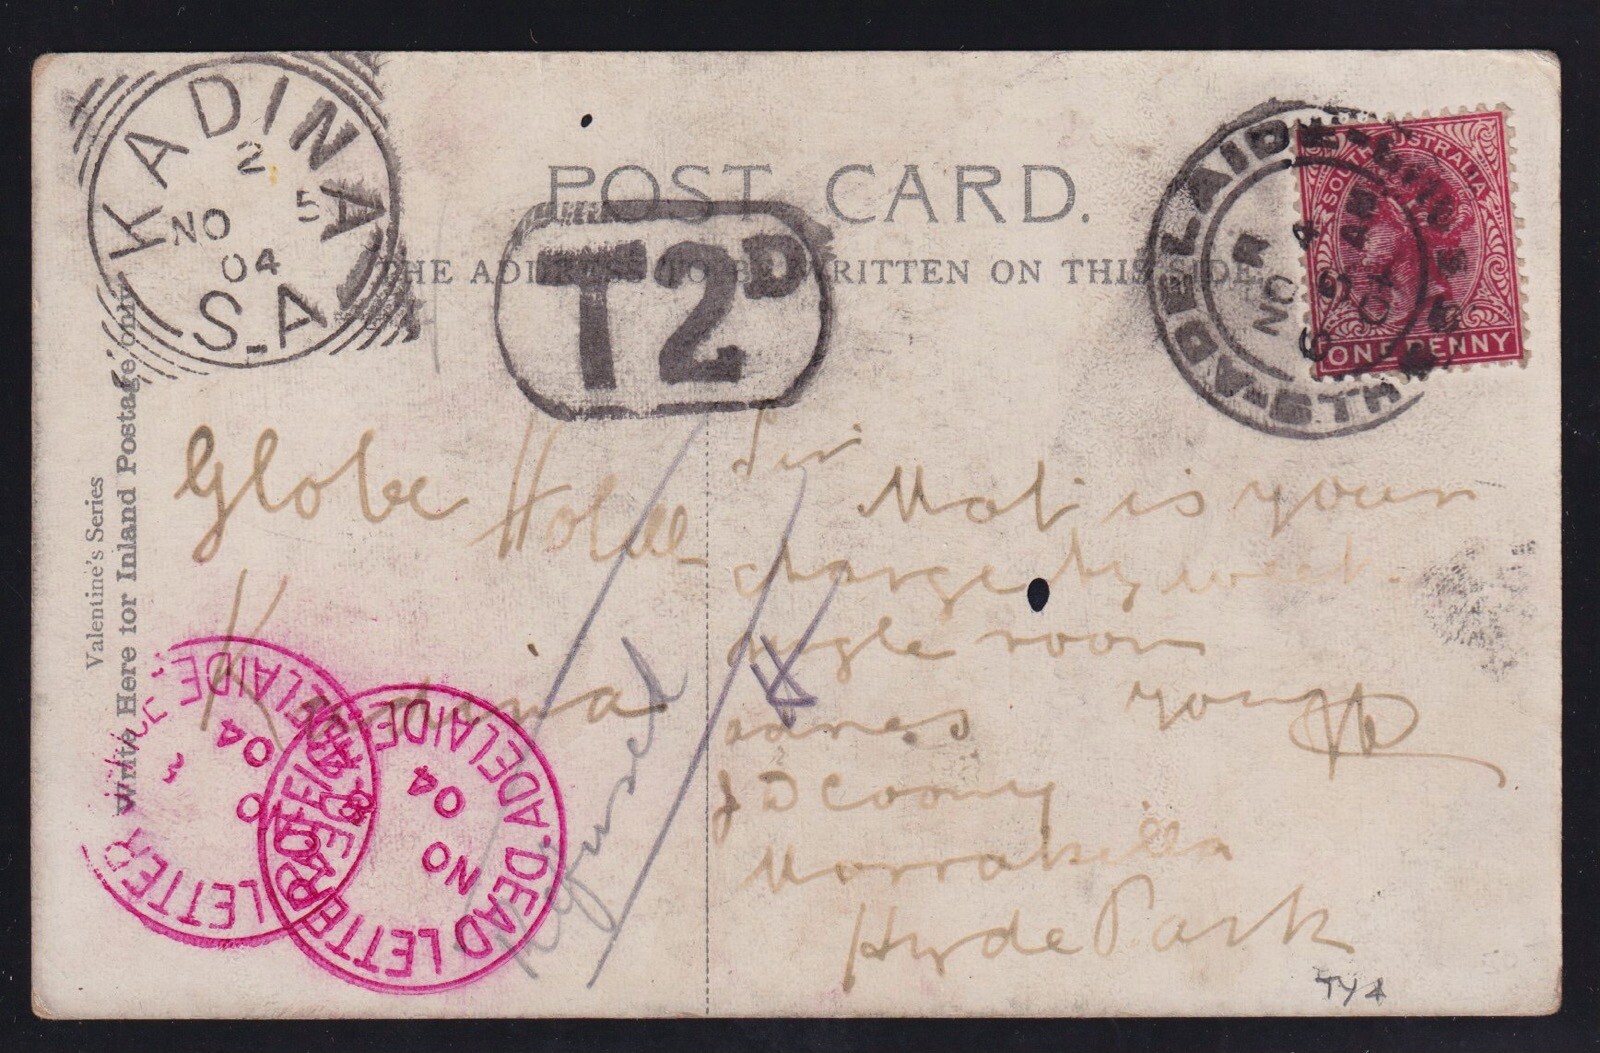 KADINA
2
NO 5
04
S.A
POST CARD.
THE ADDRESS TO BE WRITTEN ON THIS SIDE
T2D
ADELAIDE
NO 4
04
SOUTH AUSTRALIA
ONE PENNY
Valentine's Series
Write Here for Inland Postage only
Globe Hotel
Kadina
Refused
Sir
What is your
charge by week
single room
yours
J D Cooney
Hyde Park
LETTER
ADELAIDE
04
DEAD LETTER OFFICE
ADELAIDE
NO
04
TY4